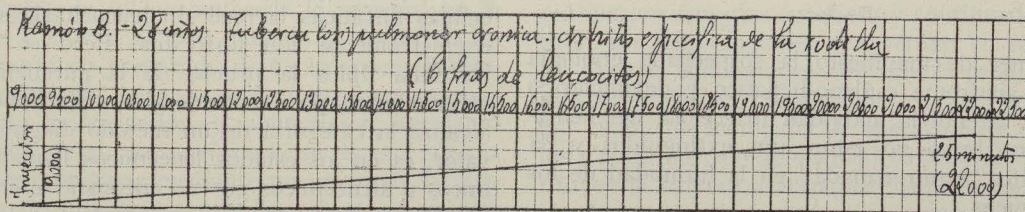 Ramón B. - 28 años Tuberculosis pulmonar cronica. Artritis especifica de la rodilla
(Cifras de leucocitos)
9000 9500 10000 10500 11000 11500 12000 12500 13000 13500 14000 14500 15000 15500 16000 16500 17000 17500 18000 18500 19000 19500 20000 20500 21000 21500 22000 22500
Inyección
(9.000)
25 minutos
(22000)